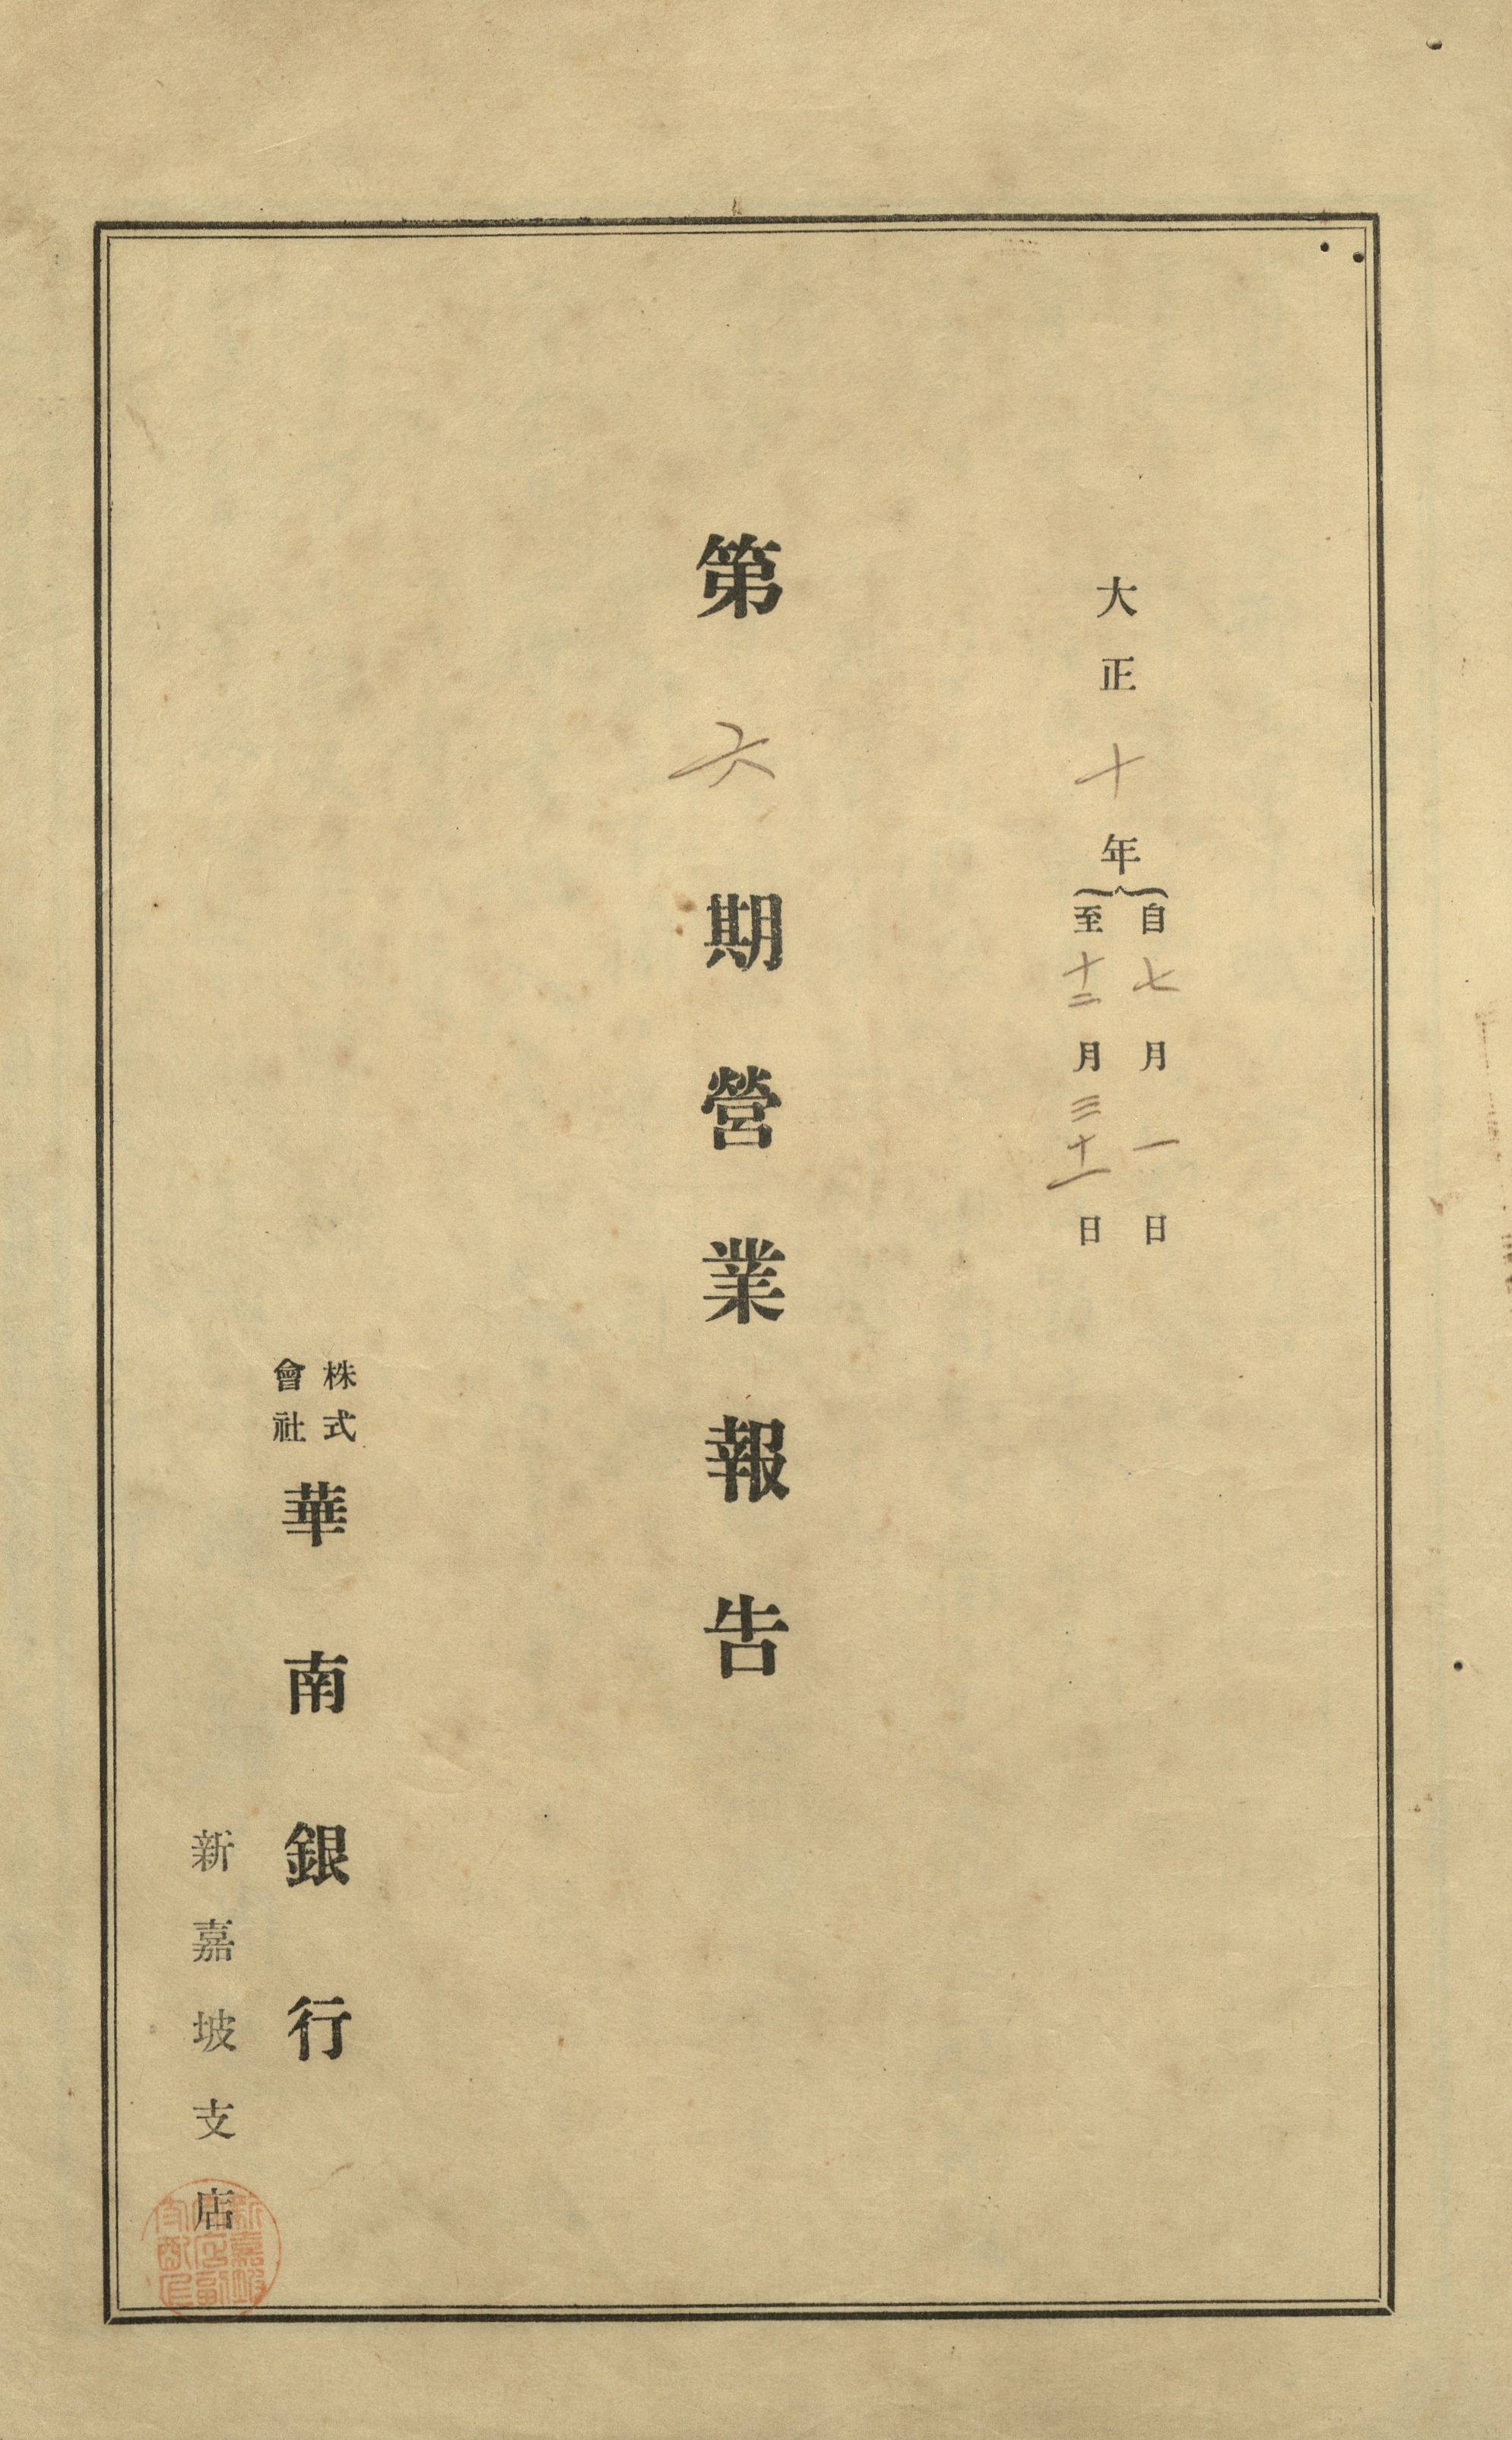 大正十年
自七月一日
至十二月三十一日
第六期營業報告
株式會社華南銀行
新嘉坡支店